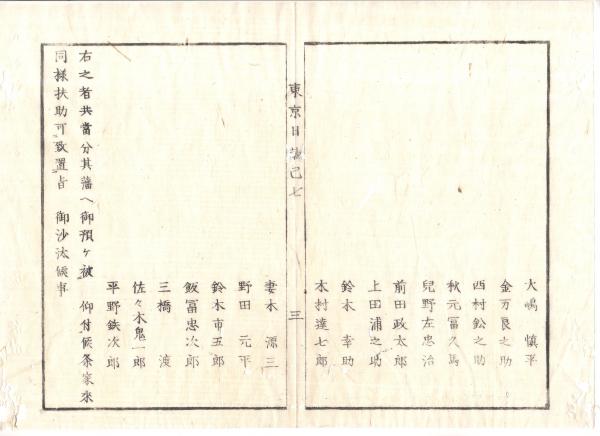 大嶋 慎平
金万良之助
西村鈆之助
秋元冨久馬
兒野左忠治
前田政太郎
上田浦之助
鈴木 幸助
木村達七郎
東京日誌己七
三
妻木 源三
野田 元平
鈴木市五郎
飯冨忠次郎
三橋 渡
佐々木鬼一郎
平野鉄次郎
右之者共當分其藩ヘ御預ケ被 仰付候条家来
同様扶助可致置旨 御沙汰候事